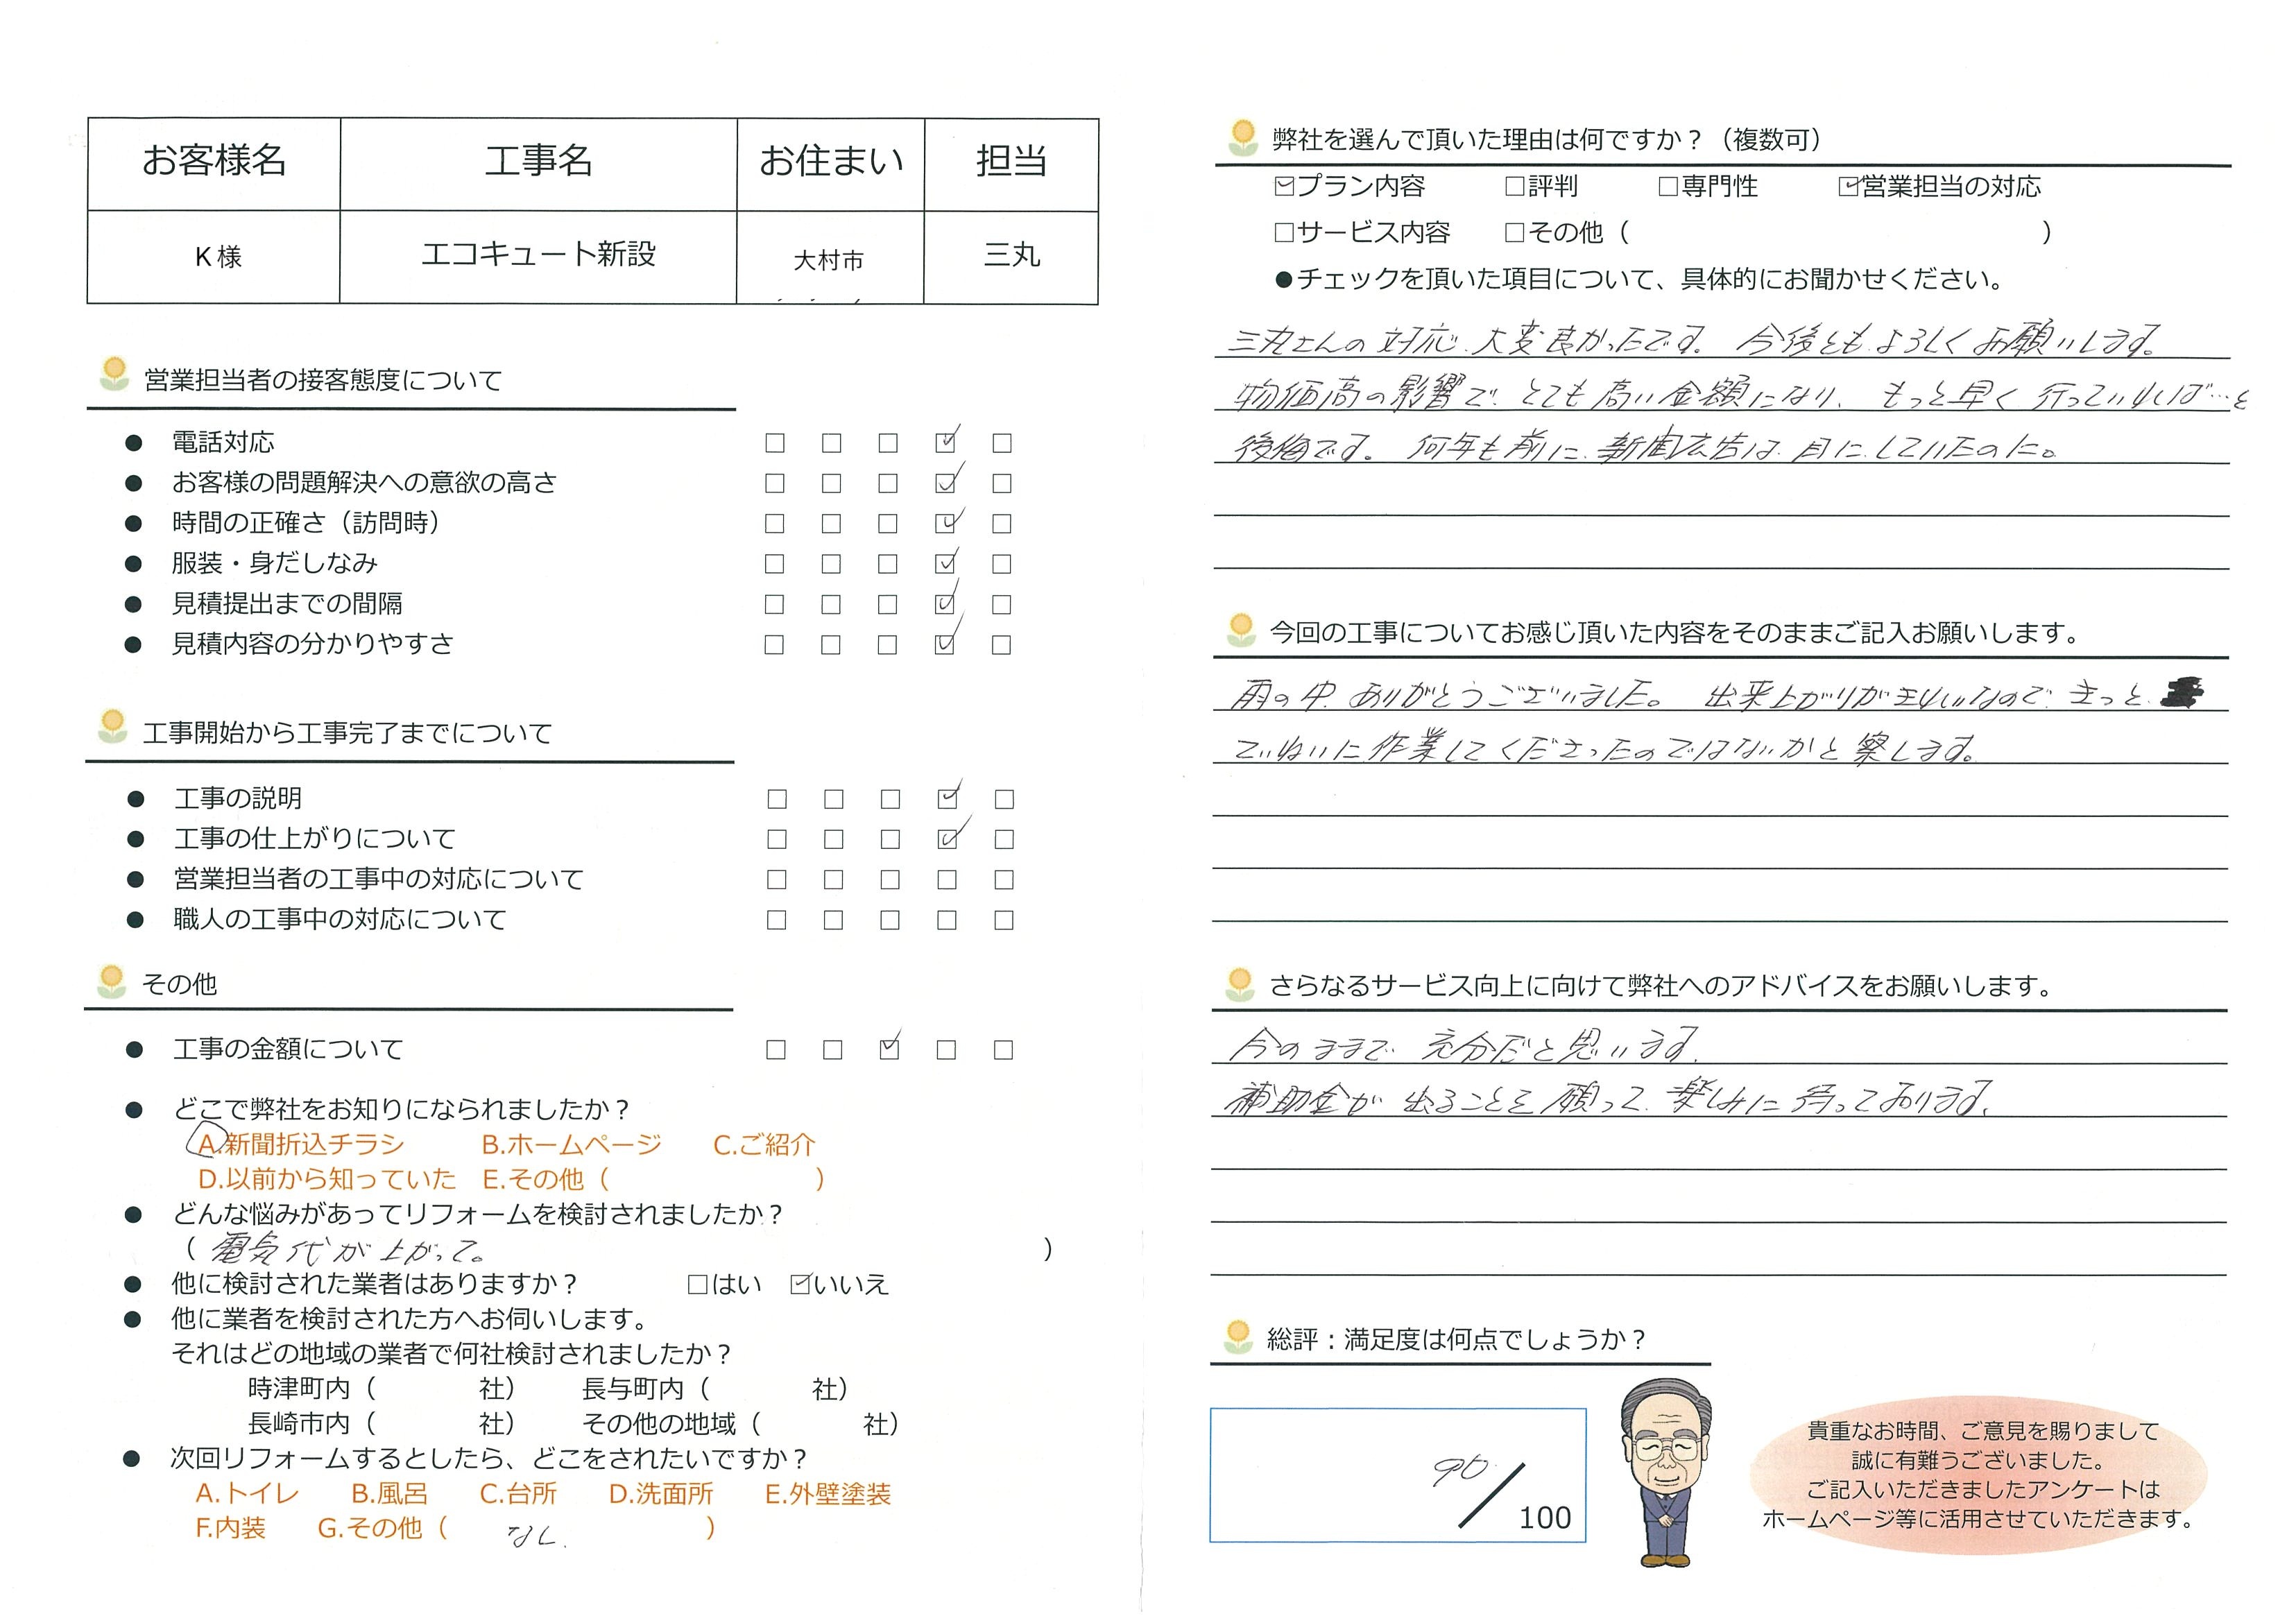 お客様名 工事名 お住まい 担当
K様 エコキュート新設 大村市 三丸
営業担当者の接客態度について
● 電話対応 □ □ □ ☑ □
● お客様の問題解決への意欲の高さ □ □ □ ☑ □
● 時間の正確さ（訪問時） □ □ □ ☑ □
● 服装・身だしなみ □ □ □ ☑ □
● 見積提出までの間隔 □ □ □ ☑ □
● 見積内容の分かりやすさ □ □ □ ☑ □
工事開始から工事完了までについて
● 工事の説明 □ □ □ ☑ □
● 工事の仕上がりについて □ □ □ ☑ □
● 営業担当者の工事中の対応について □ □ □ □ □
● 職人の工事中の対応について □ □ □ □ □
その他
● 工事の金額について □ □ ☑ □ □
● どこで弊社をお知りになられましたか？
A.新聞折込チラシ B.ホームページ C.ご紹介
D.以前から知っていた E.その他（ ）
● どんな悩みがあってリフォームを検討されましたか？
（電気代が上がって。）
● 他に検討された業者はありますか？ □はい ☑いいえ
● 他に業者を検討された方へお伺いします。
それはどの地域の業者で何社検討されましたか？
時津町内（ 社） 長与町内（ 社）
長崎市内（ 社） その他の地域（ 社）
● 次回リフォームするとしたら、どこをされたいですか？
A.トイレ B.風呂 C.台所 D.洗面所 E.外壁塗装
F.内装 G.その他（ なし. ）
弊社を選んで頂いた理由は何ですか？（複数可）
☑プラン内容 □評判 □専門性 ☑営業担当の対応
□サービス内容 □その他（ ）
●チェックを頂いた項目について、具体的にお聞かせください。
三丸さんの対応、大変良かったです。今後ともよろしくお願いします。
物価高の影響で、とても高い金額になり、もっと早く行っていれば…と
後悔です。何年も前に、新聞広告は目にしていたのに。
今回の工事についてお感じ頂いた内容をそのままご記入お願いします。
雨の中、ありがとうございました。出来上がりがきれいなので、きっと、
ていねいに作業してくださったのではないかと察します。
さらなるサービス向上に向けて弊社へのアドバイスをお願いします。
今のままで、充分だと思います。
補助金が出ることを願って、楽しみに待っております。
総評：満足度は何点でしょうか？
90／100
貴重なお時間、ご意見を賜りまして
誠に有難うございました。
ご記入いただきましたアンケートは
ホームページ等に活用させていただきます。